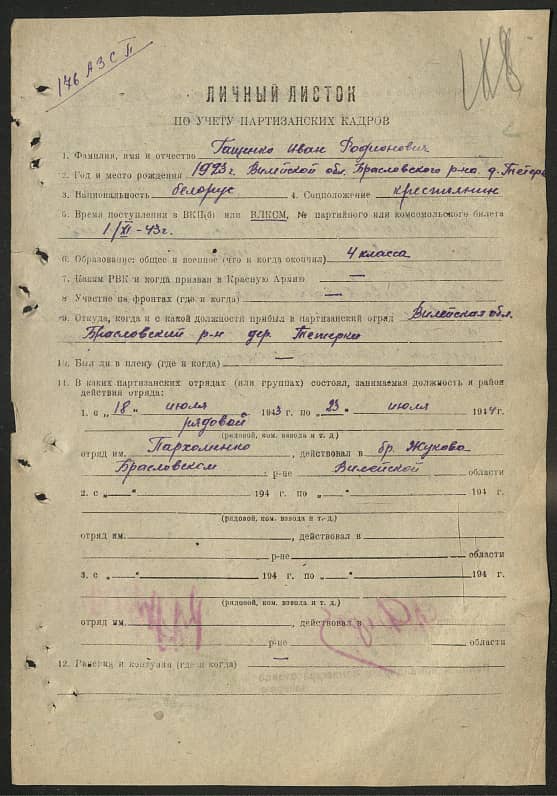 176 А З С П
ЛИЧНЫЙ ЛИСТОК
ПО УЧЕТУ ПАРТИЗАНСКИХ КАДРОВ
1. Фамилия, имя и отчество Гащенко Иван Родионович
2. Год и место рождения 1923 г. Вилейской обл. Браславского р-на д. Тетерк
3. Национальность белорус 4. Соцположение крестьянин
5. Время поступления в ВКП(б) или ВЛКСМ, № партийного или комсомольского билета
1/XI-43 г.
6. Образование: общее и военное (что и когда окончил) 4 класса
7. Каким РВК и когда призван в Красную Армию —
8 Участие на фронтах (где и когда) —
9. Откуда, когда и с какой должности прибыл в партизанский отряд Вилейская обл.
Браславский р-н дер. Тетерки
10. Был ли в плену (где и когда) —
11. В каких партизанских отрядах (или группах) состоял, занимаемая должность и район
действия отряда:
1. с „18" июля 1943 г. по „23" июля 1944 г.
рядовой
(рядовой, ком. взвода и т. д.)
отряд им. Пархоменко, действовал в бр. Жукова
Браславском р-не Вилейской области
2. с „—" 194 г. по „—" 194 г.
(рядовой, ком. взвода и т. д.)
отряд им. , действовал в
р-не области
3. с „—" 194 г. по „—" 194 г.
(рядовой, ком. взвода и т. д.)
отряд им. , действовал в
р-не области
12. Ранения и контузии (где и когда) —